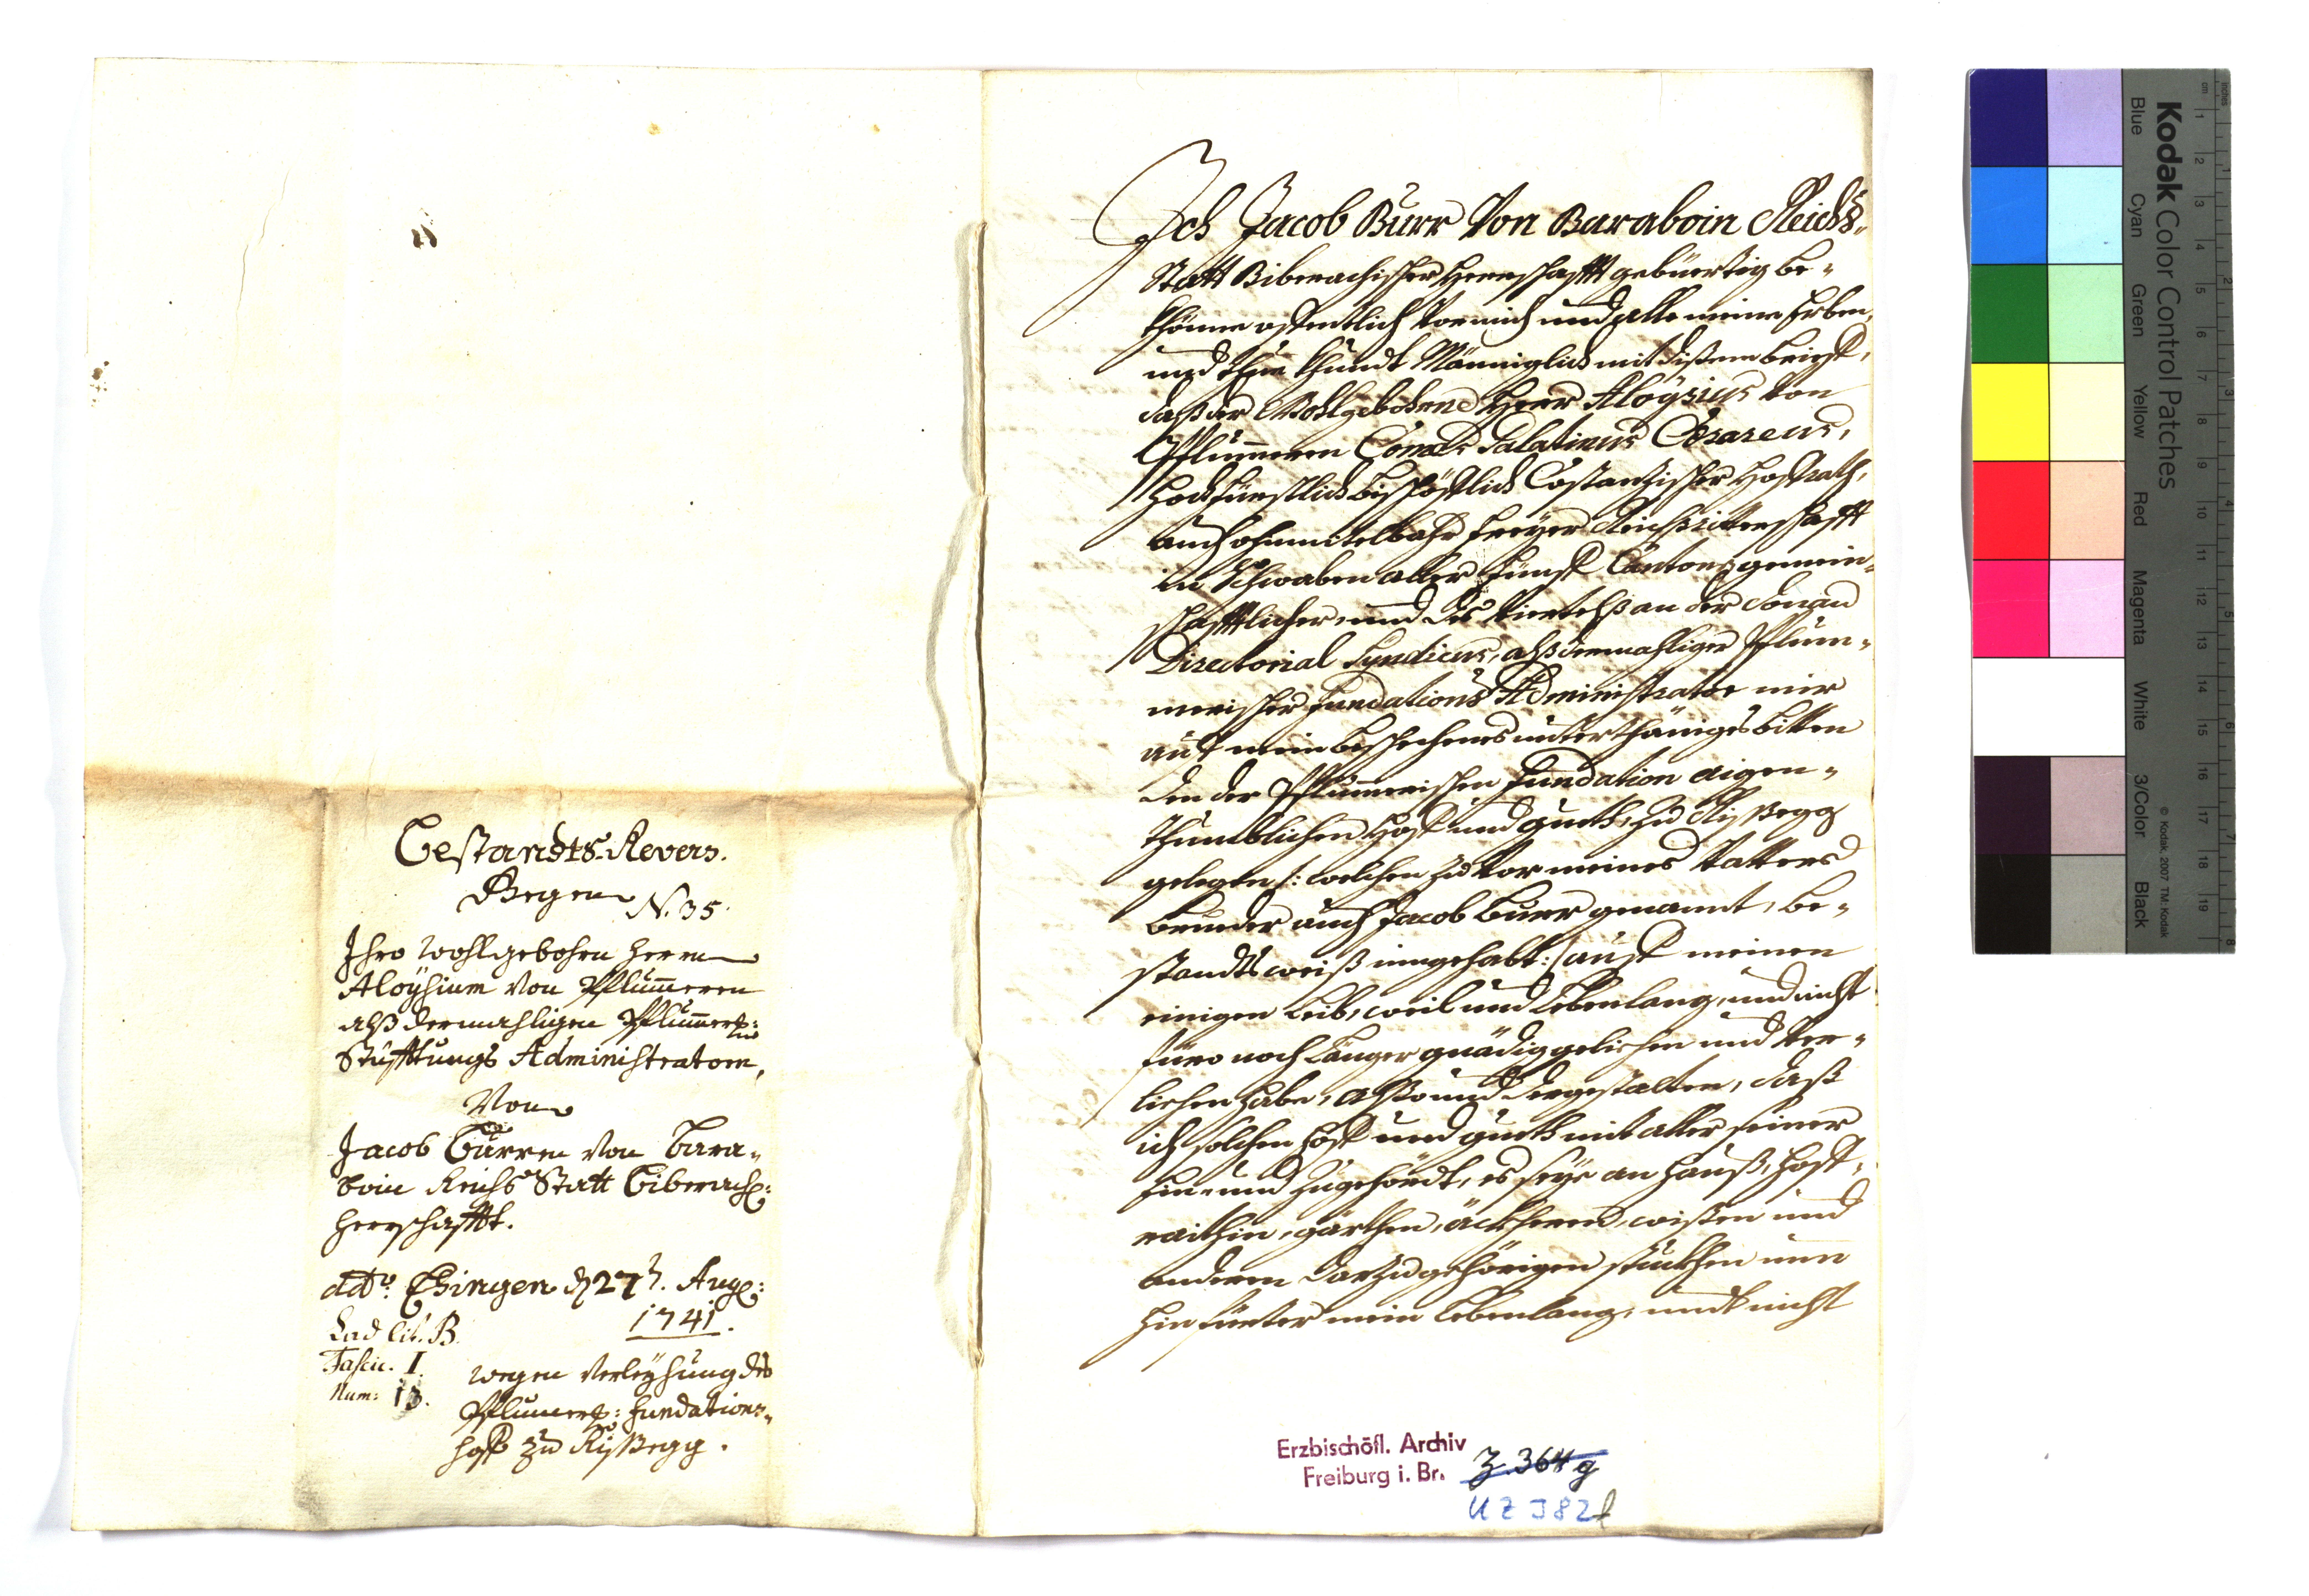 Bestandts-Revers.
Gegen N. 35.
Ihro Wohlgebohrn Herrn
Aloysium von Pflumeren
alß dermahligen Pflumer:
Stüfftungs Administratorn,
Von
Jacob Burren von Bara-
boin Reichs Statt Biberach:
herrschafft.
ddto. Ehingen d 27t. Aug:
1741.
Lad lit. B.
Fascic. I.
Num: 13.
wegen Verleyhung des
Pflumer: Fundations-
Hoff zu Rißegg.
Ich Jacob Burr Von Baraboin Reichs-
Statt Biberachischer Herrschafft gebürtig be-
khönne offentlich vor mich und alle meine Erben,
und thue khundt Männiglich mit dißem brieff,
daß der Wohlgebohrne Herr Aloysius von
Pflumeren Comes Palatinus Cæsareus,
Hochfürstlich bischöfflich Costanzischer Hoffrath,
auch ohnmitelbahr freyer Reichsritterschafft
in Schwaben aller fünff Cantons gemein-
schafftlicher und des Viertelß an der Donau
Directorial Syndicus, alß dermahliger Pflum-
merischer Fundations Administrator mir
auf mein beschechenes unterthäniges bitten
den der Pflummerischen Fundation aigen-
thumblichen Hoff und gueth zu Rißegg
gelegen /: welchen zu vor meines Vatters
brueder auch Jacob Burr genannt, be-
standtsweiß inngehabt :/ auff meinen
einigen Leib, weil und Lebenlang, und nicht
füro noch länger gnädig gelichen und ver-
lichen habe, also und dergestalten, daß
ich solchen Hoff und gueth mit aller seiner
Ein- und Zugehördt, es seye an Hauß, Hoff-
raithin, gärthen, äckheren, wißen und
anderen darzu gehörigen stückhen nun
hinfürter mein Lebenlang, undt nicht
Erzbischöfl. Archiv
Freiburg i. Br.
Z. 364 g
UZ J82 l